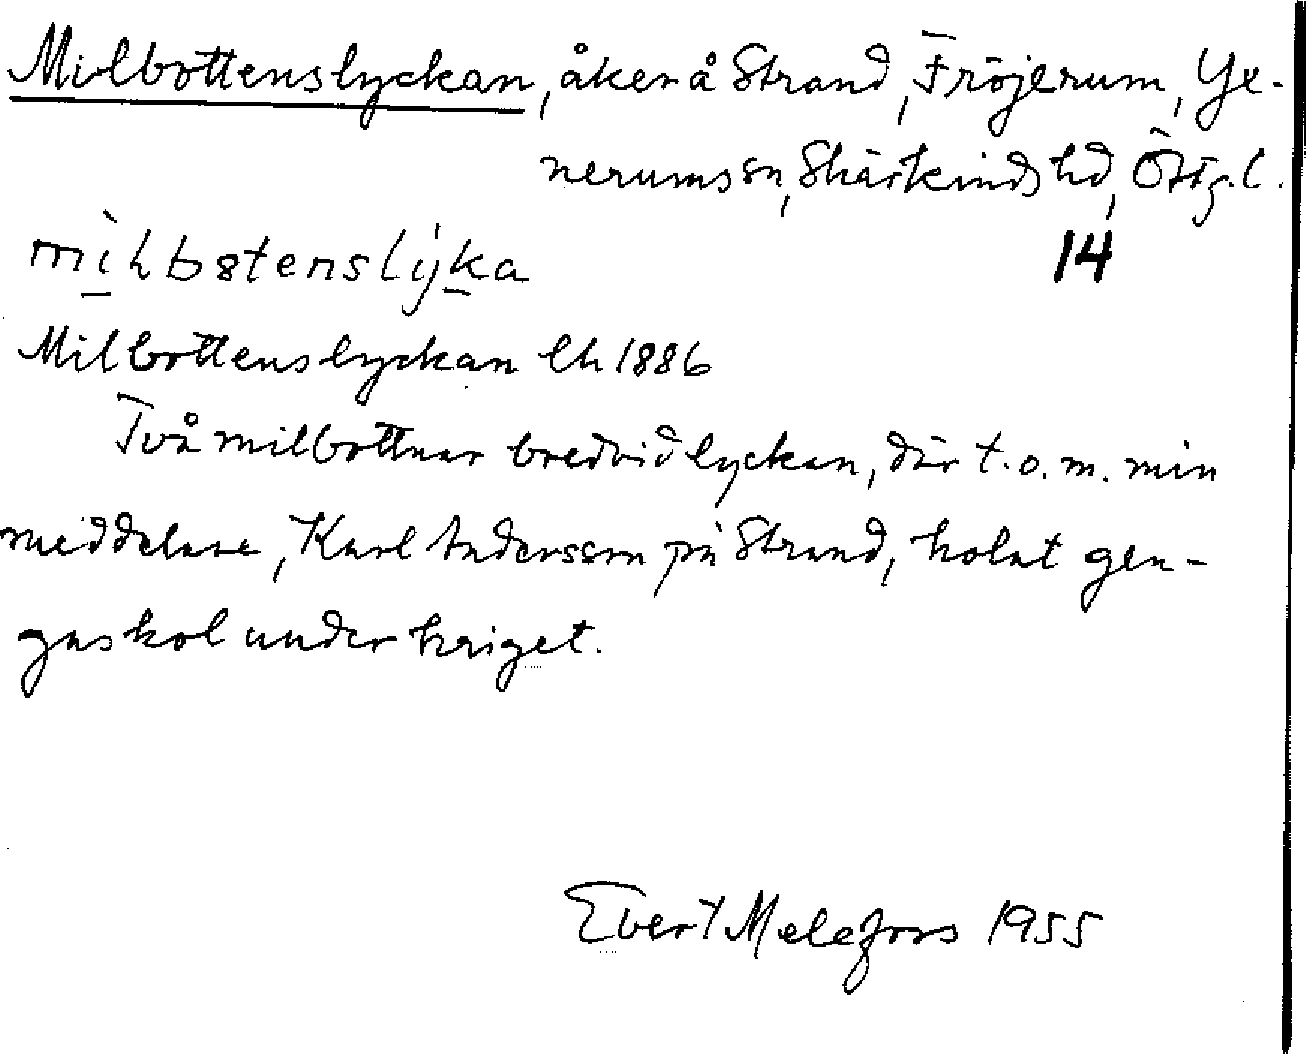 Milbottenslyckan, åker å Strand, Fröjerum, Yx-
nerums sn, Skärkinds hd, Östg. l.
14
Milbottenslyckan lh 1886
Två milbottnar bredvid lyckan, där t.o.m. min
meddelare, Karl Andersson på Strand, kolat gen-
gaskol under kriget.
Evert Melefors 1955